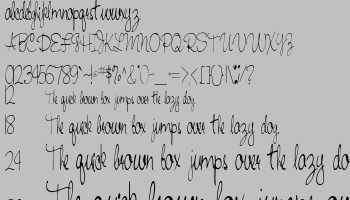 abcdefghijklmnopqrstuvwxyz
ABCDEFGHIJKLMNOPQRSTUVWXYZ
0123456789
12 The quick brown fox jumps over the lazy dog.
18 The quick brown fox jumps over the lazy dog.
24 The quick brown fox jumps over the lazy do
The quick brown fox jumps over